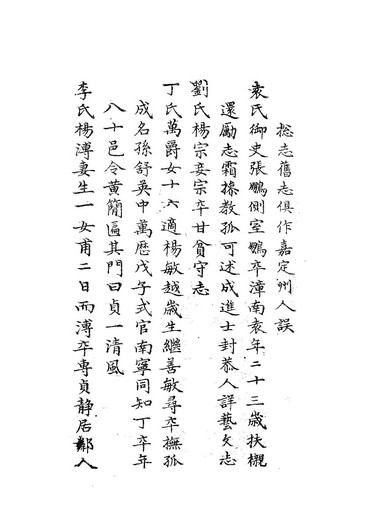 總志舊志俱作嘉定州人誤
袁氏御史張鵬側室鵬卒漳南袁年二十三歲扶櫬
還勵志霜操教孤可述成進士封恭人詳藝文志
劉氏楊宗妾宗卒甘貧守志
丁氏萬爵女十六適楊敏越歲生繼善敏尋卒撫孤
成名孫舒吳中萬歷戊子式官南寧同知丁卒年
八十邑令黃簡匾其門曰貞一清風
李氏楊漙妻生一女甫二日而漙卒專貞静居鄰人